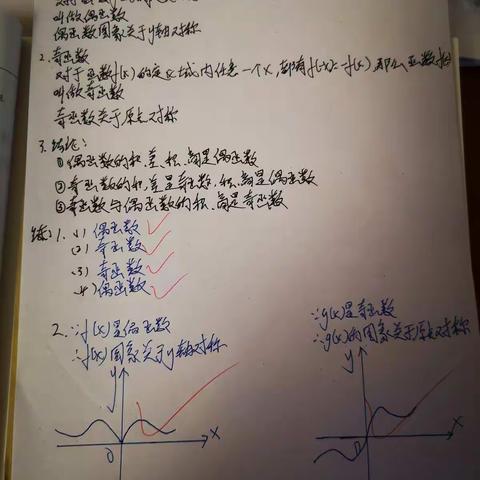 叫做偶函数
偶函数图象关于y轴对称
2.奇函数
对于函数f(x)的定义域内任意一个x,都有f(-x)=-f(x),那么函数f(x)
叫做奇函数
奇函数关于原点对称
3.结论:
①偶函数的和、差、积、商是偶函数
②奇函数的和、差是奇函数,积、商是偶函数
③奇函数与偶函数的积、商是奇函数
练:1.(1)偶函数
(2)奇函数
(3)奇函数
(4)偶函数
2.∵f(x)是偶函数
∴f(x)图象关于y轴对称
y
0
x
∵g(x)是奇函数
∴g(x)的图象关于原点对称
y
0
x